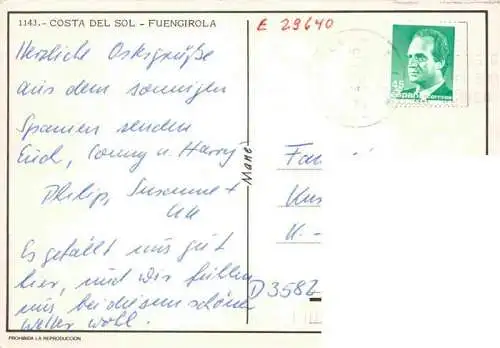 1143.- COSTA DEL SOL - FUENGIROLA
E 29640
Herzliche Ostergrüße
aus dem sonnigen
Spanien senden
Euch, Conny u. Harry
Philip, Susanne +
Es gefällt uns gut
hier, und wir fühlen
uns bei diesem schönen
Wetter wohl.
PROHIBIDA LA REPRODUCCION
45
España correos
Mane
Fa
Kus
K. -
D 3582